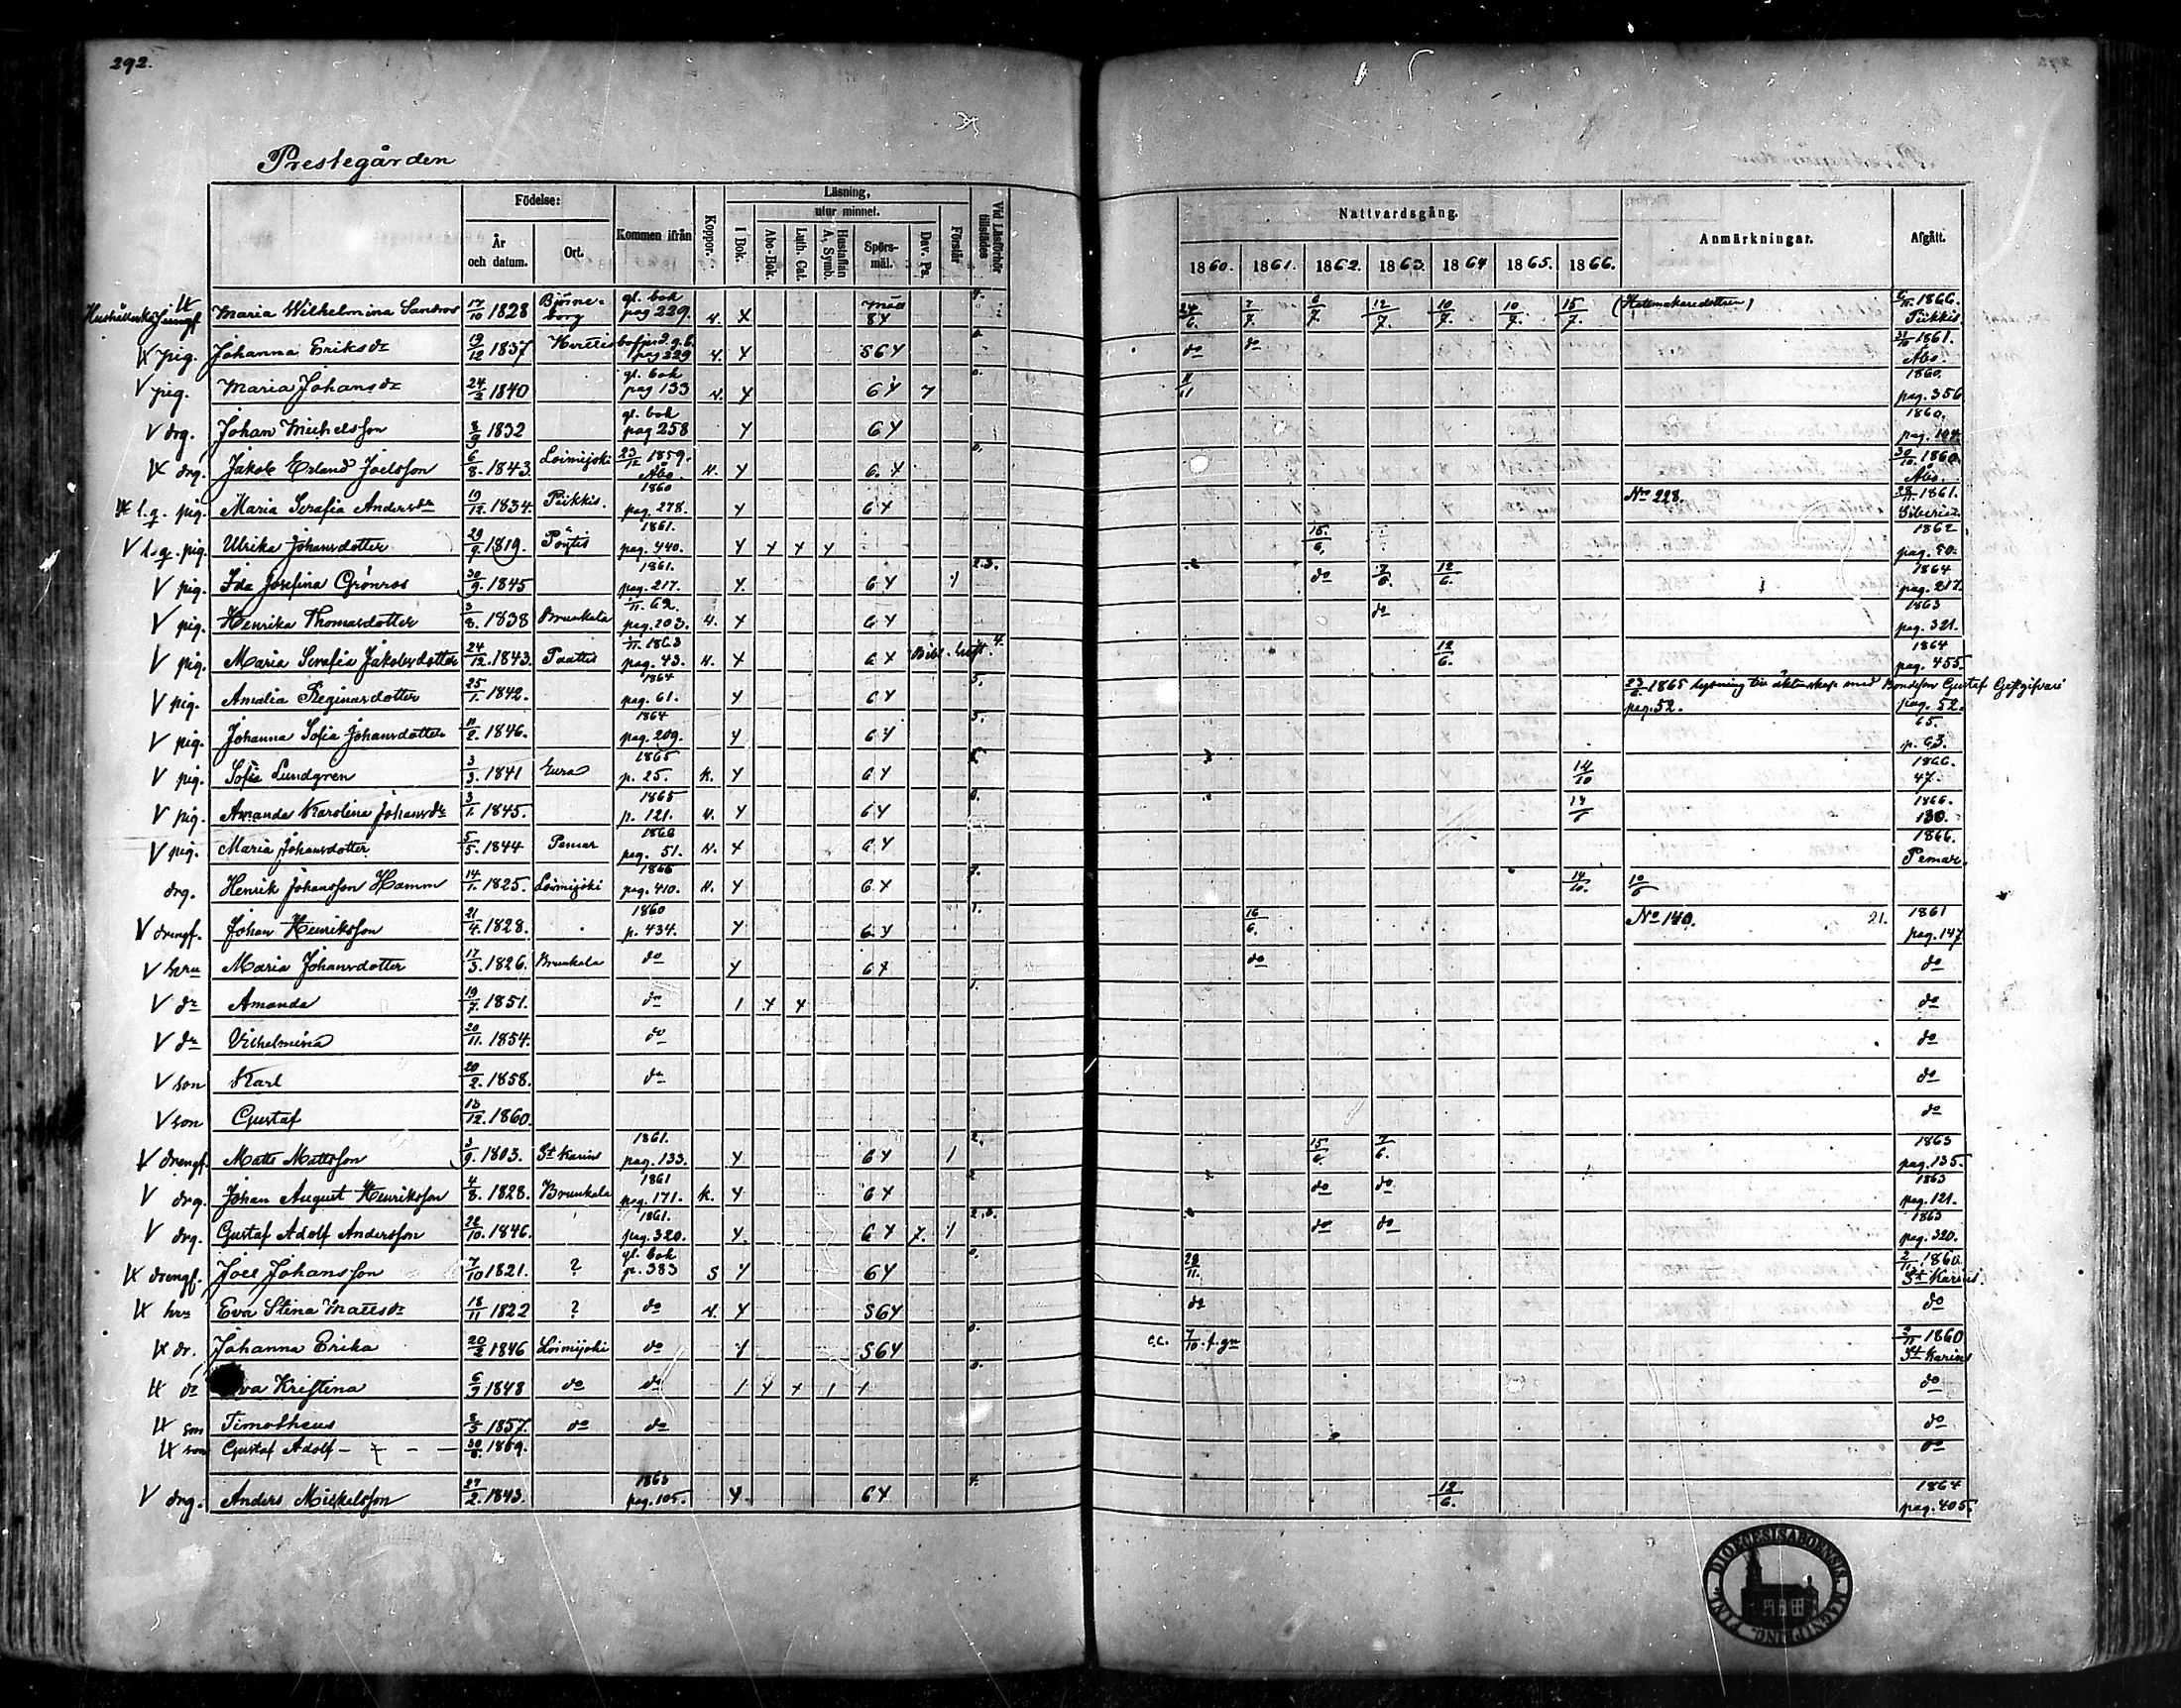 292.
Prestegården
Födelse: Kommen ifrån Koppor. Läsning, Vid Läsförhör tillstädes
utur minnet.
År och datum. Ort. I Bok. Abc-Bok. Luth. Cat. Hustaflan A. Symb. Spörsmål. Dav. Ps. Förstår
Nattvardsgång. Anmärkningar. Afgått.
1860. 1861. 1862. 1863. 1864 1865. 1866.
Jungf Maria Wilhelmina 17/10 1828 Björneborg gl. bok pag 229. 24/6. 7/7. 6/7. 12/7. 10/7. 10/7. 15/7. 1866. Piikkis.
pig. Johanna Eriksdr 19/12 1837 pag 229 S6Y do do 1861. Åbo.
V pig. Maria Johansdr 24/2 1840 gl. bok pag 133 6Y 11/11 1860. pag. 356
V drg. Johan Michelsson 8/9 1832 gl. bok pag 258 6Y 1860. pag. 104
drg. Jakob Erland Joelsson 6/8. 1843 Loimijoki 23/12 1859. Åbo. 30/10. 1860. Åbo.
pig. Maria Serafia Andersdr 19/12. 1834. Piikkis. 1860 pag. 278. 6Y No 228. 28/11. 1861. Siberien.
V pig. Ulrika Johansdotter 29/9. 1819. Pöytis 1861. pag. 440. 15/6. 1862 pag. 90.
V pig. Ida Josefina Grönroos 30/9. 1845 1861. pag. 217. 6Y 2.3. do 7/6. 12/6. 1864 pag. 217.
V pig. Henrika Thomasdotter 3/8. 1838 Brunkala 62. pag. 203. 6Y do 1863 pag. 321.
V pig. Maria Serafia Jakobsdotter 24/12. 1843. Paattis 1863 pag. 43. 4. 12/6. 1864 pag. 455.
V pig. Amalia Reginasdotter 25/1. 1842. 1864 pag. 61. 6Y 5. 23/6. 1865 lysning till äktenskap med Bondeson Gustaf
pag. 52. pag. 52.
V pig. Johanna Sofia Johansdotter 11/2. 1846. 1864 pag. 209. 6Y 5. 65. p. 63.
V pig. Sofia Lundgren 3/3. 1841 Eura 1865 p. 25. k. 6Y 14/10 1866. 47.
V pig. Amanda Karolina Johansdr 3/1. 1845. 1865 p. 121. 6Y 1866. 130.
V pig. Maria Johansdotter 5/5. 1844 Pemar 1866 pag. 51. 6Y 1866. Pemar.
drg. Henrik Johansson Hamm 14/1. 1825. Loimijoki 1866 pag. 410. 6Y 7. 14/10. 10/6
V drengf. Johan Henriksson 21/4. 1828. 1860 p. 434. 6Y 1. 16/6. No 140. 21. 1861 pag. 147
V hru Maria Johansdotter 17/3. 1826. Brunkala do 6Y do do
V dr Amanda 19/7. 1851. do 1. do
V dr Vilhelmina 20/11. 1854. do do
V son Karl 20/2. 1858. do do
V son Gustaf 13/12. 1860. do
V drengf. Matts Mattsson 3/9. 1803. St Karins 1861. pag. 133. 6Y 2. 15/6. 7/6. 1863 pag. 135.
V drg. Johan August Henriksson 4/8. 1828. Brunkala 1861 pag. 171. k. 6Y 2 do do 1863 pag. 121.
V drg. Gustaf Adolf Andersson 22/10. 1846. 1861. pag. 320. 6Y 7. 2.3. do do 1863 pag. 320.
drengf. Joel Johansson 7/10 1821. ? gl. bok p. 383 S 6Y 0. 28/11. 2/11. 1860. St Karins.
hru Eva Stina Mattsdr 18/11 1822 ? do S6Y do do
dr. Johanna Erika 20/2 1846 Loimijoki do S6Y 0. c.c. 7/10. f. gn 1860 St Karins
dr Eva Kristina 6/9 1848 do do 0. do
son Timotheus 1857. do do do
son Gustaf Adolf do
V drg. Anders Mickelsson 27/2. 1843. 1863 pag. 105. 6Y 4. 12/6. 1864 pag. 405.
DIOECESIS ABOENSIS